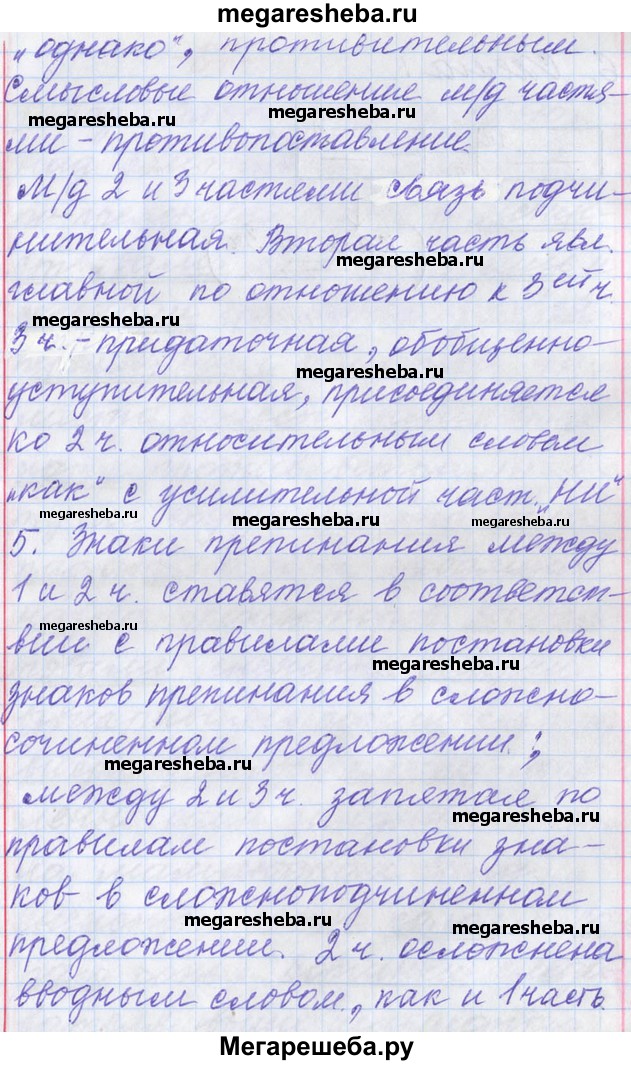 megaresheba.ru
„однако", противительным.
Смысловые отношение м/д частя-
megaresheba.ru
megaresheba.ru
ми - противопоставление.
М/д 2 и 3 частями связь подчи-
нительная. Вторая часть явл.
megaresheba.ru
главной по отношению к 3ей ч.
megaresheba.ru
3 ч. - придаточная, обобщенно-
megaresheba.ru
уступительная, присоединяется
ко 2 ч. относительным словом
„как" с усилительной част. „НИ"
megaresheba.ru
megaresheba.ru
megaresheba.ru
5. Знаки препинания между
1 и 2 ч. ставятся в соответст-
megaresheba.ru
вии с правилами постановки
megaresheba.ru
знаков препинания в сложно-
сочиненном предложении:,
megaresheba.ru
между 2 и 3 ч. запятая по
megaresheba.ru
правилам постановки зна-
ков в сложноподчиненном
megaresheba.ru
megaresheba.ru
предложении. 2 ч. осложнена
вводным словом, как и 1 часть.
megaresheba.ru
megaresheba.ru
Мегарешеба.ру